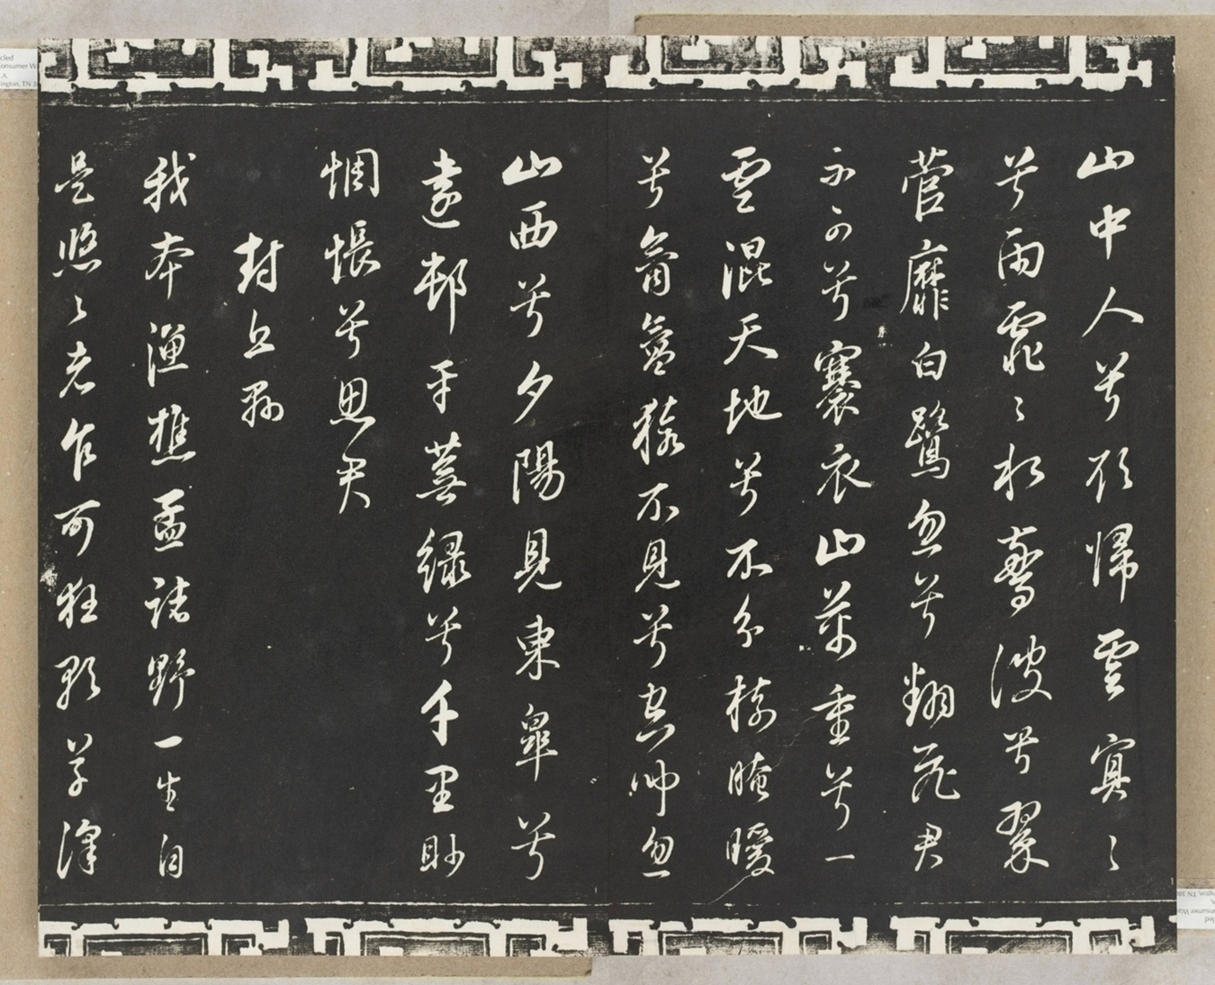 山中人兮欲歸雲冥〻
兮雨霏〻水驚波兮翠
菅靡白鷺忽兮翻飛君
不可兮褰衣山萬重兮一
雲混天地兮不分樹晻曖
兮氛氳猿不見兮空聞忽
山西兮夕陽見東皋兮
遠邨平蕪緑兮千里眇
惆悵兮思君
封丘縣
我本漁樵孟諸野一生自
是悠〻者乍可狂歌草澤